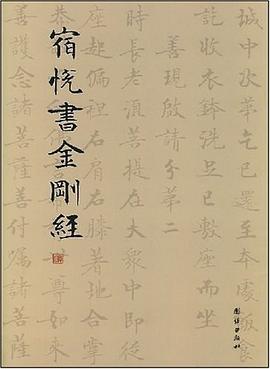 宿悦書金剛經
城中次第乞已還至本處飯食
訖收衣鉢洗足已敷座而坐
善現啟請分第二
時長老須菩提在大眾中即從
座起偏袒右肩右膝著地合掌
恭 尊如來
善護念諸菩薩善付囑諸菩薩
團结出版社